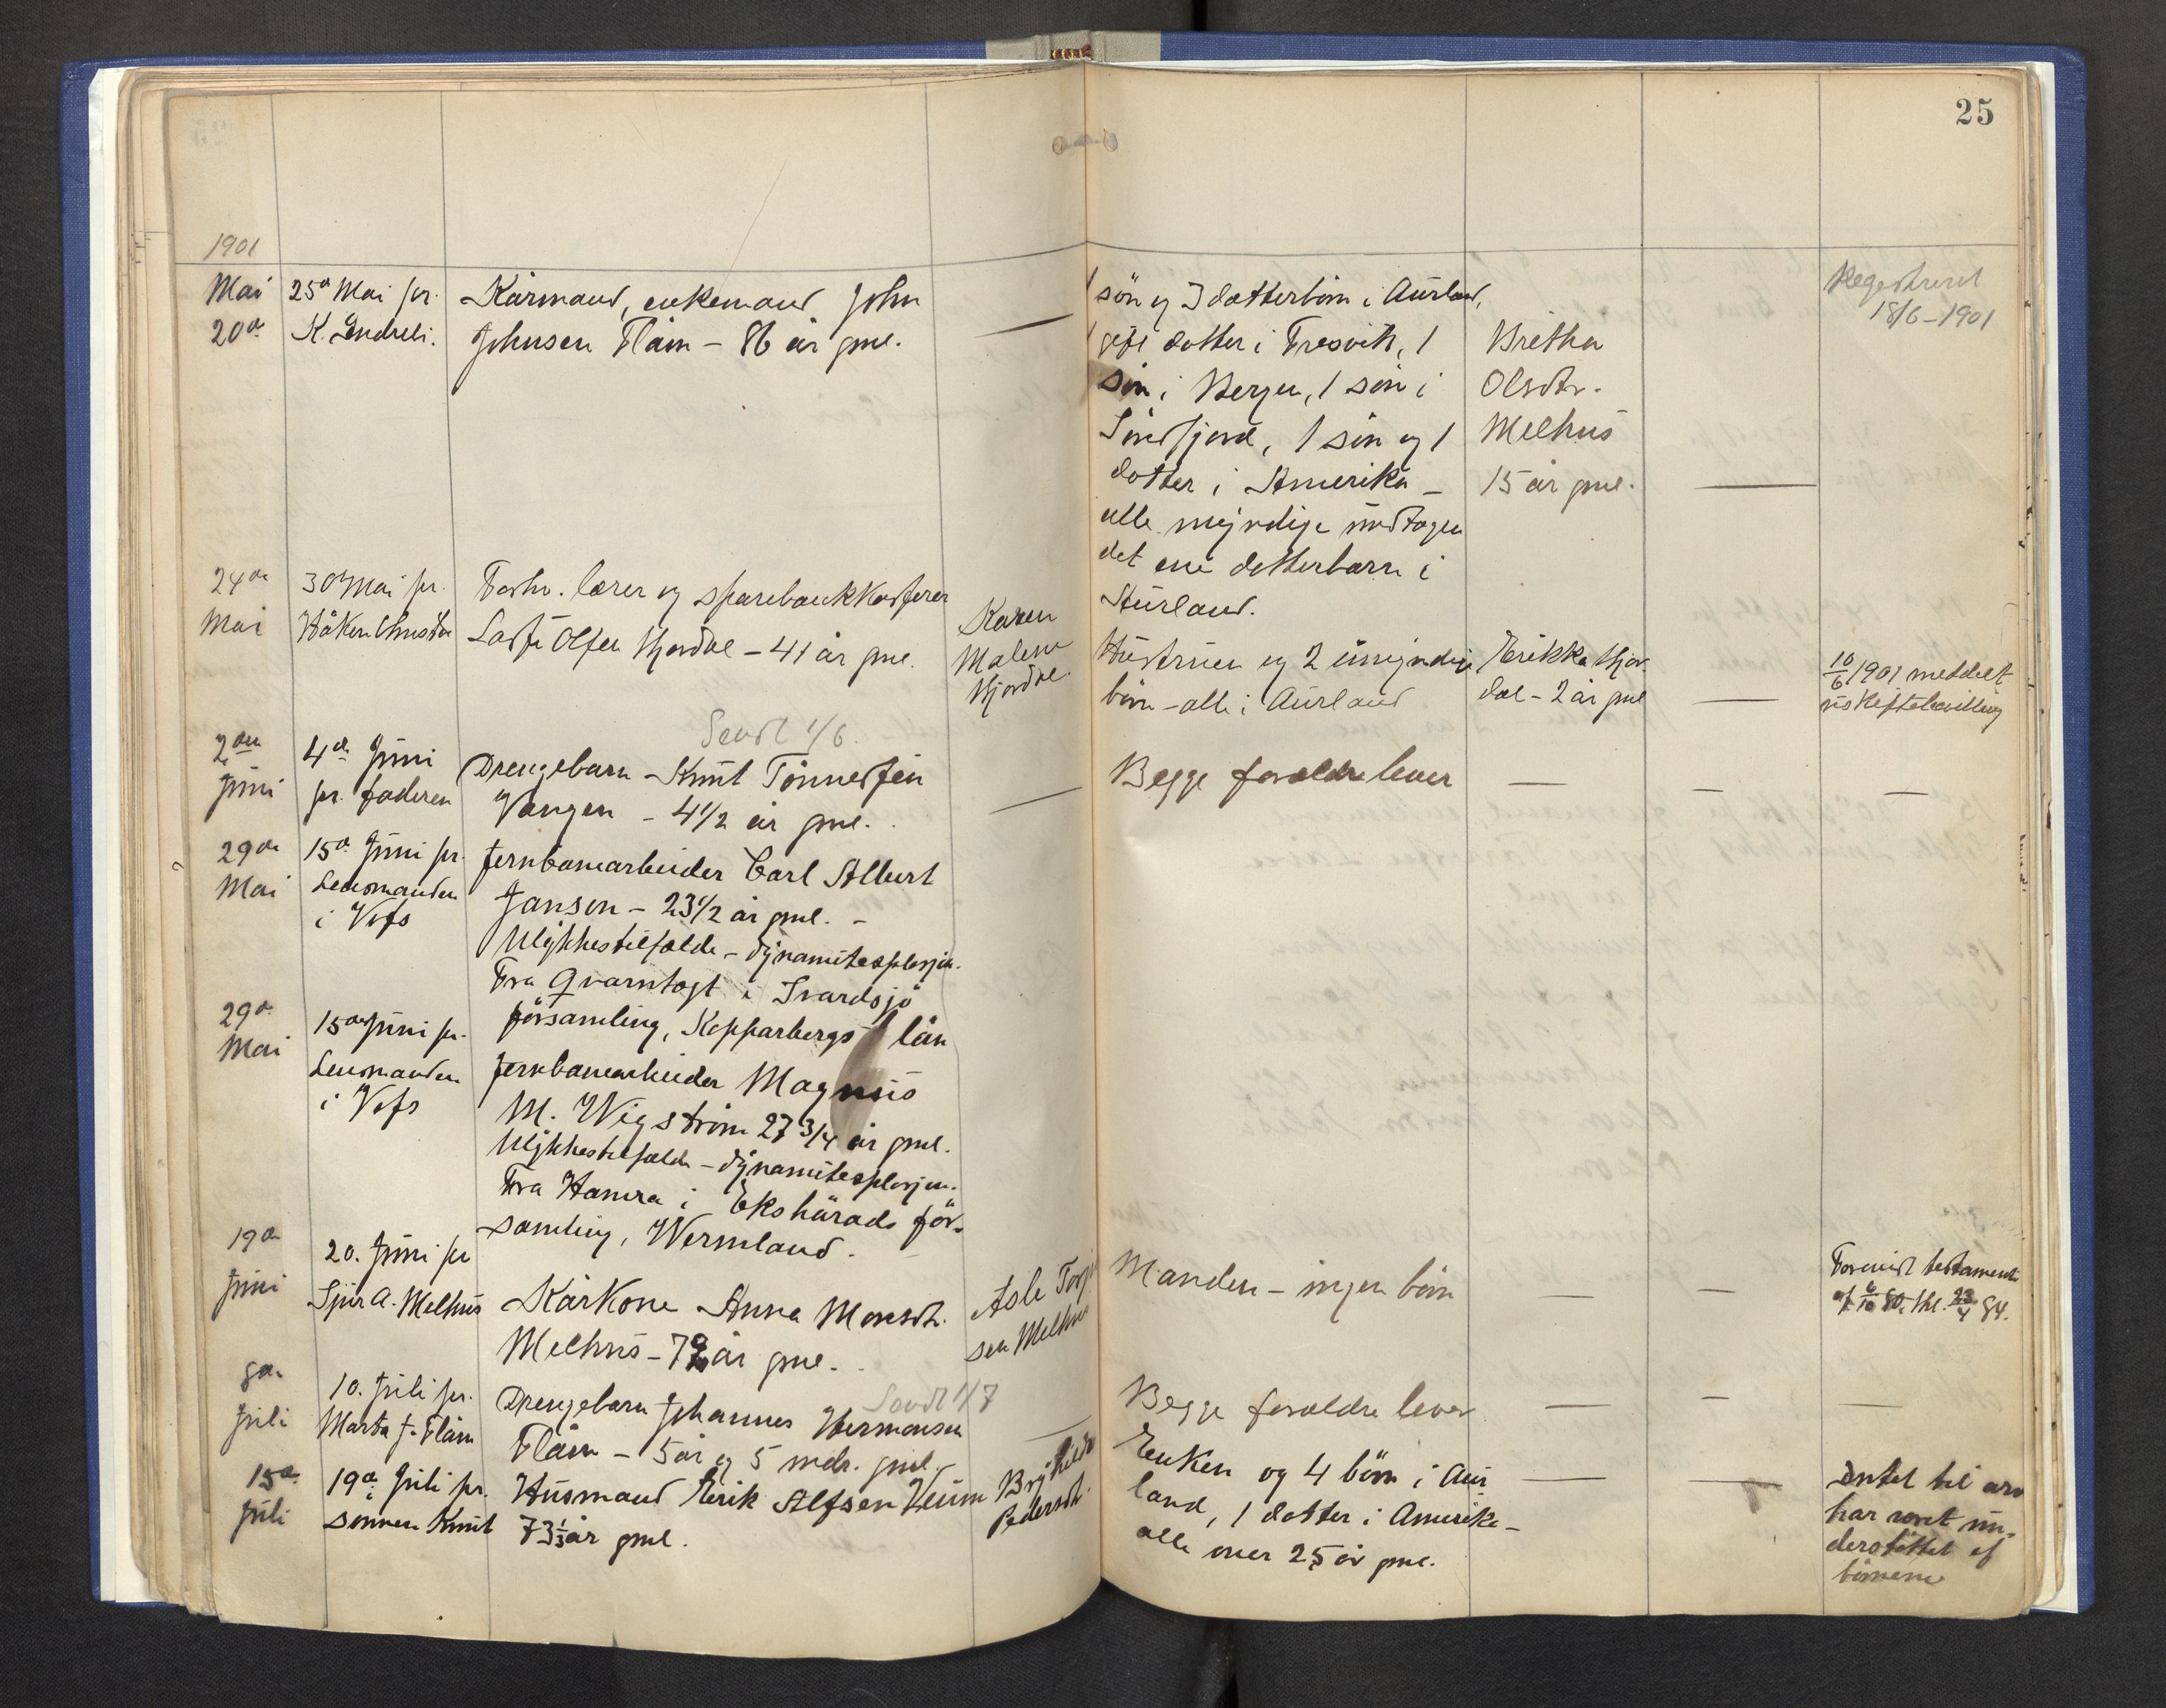 25
1901
Mai
20de
25de Mai pr.
K. Endresi.
Kårmand, enkemand John
Johnsen Flåm – 86 år gml.
1 søn og 3 datterbørn i Aurland,
1 gift datter i Fresvik, 1
søn i Bergen, 1 søn i
Søndfjord, 1 søn og 1
datter i Amerika –
alle myndige undtagen
det ene datterbarn i
Aurland.
Bretha
Olsdtr.
Melhus
15 år gml.
Registreret
18/6 – 1901
24de
Mai
30 Mai pr.
Håken
Forhv. lærer og sparebankkasserer
Lasse Olsen Hjerdal – 41 år gml.
Karen
Malene
Hjerdal
Hustruen og 2 umyndige
børn – alle i Aurland
Erikka Hjer-
dal – 2 år gml
10/6 1901 meddelt
uskiftebevilling
Sendt 1/6.
2den
Juni
4de Juni
pr. faderen
Drengebarn Knut Tønnessen
Vangen – 4 1/2 år gml.
Begge forældre lever
29de
Mai
15de Juni pr.
Lensmanden
i Voss
Jernbanearbeider Carl Albert
Janson – 23 1/2 år gml. –
Ulykkestilfælde – dynamitexplosjon.
Fra Qvarntägt i Svardsjö
församling, Kopparbergs län
29de
Mai
15de Juni pr.
Lensmanden
i Voss
Jernbanearbeider Magnus
M. Wigström 27 3/4 år gml.
Ulykkestilfælde – dynamitexplosjon.
Fra Hamra i Ekshärads för-
samling, Wermland.
19de
Juni
20. Juni pr
Sjur A. Melhus
Kårkone Anna Monsdtr.
Melhus – 79 år gml.
Asle Torje
sen Melhus
Manden – ingen børn
Forenet testamente
af 6/10 80, thl. 23/4 84.
Sendt 1/7
8de
Juli
10. Juli pr.
Marta J. Flåm
Drengebarn Johannes Hermansen
Flåm – 5 år og 5 mdr. gml.
Begge forældre lever
15de
Juli
19de Juli pr.
sønnen Knut
Husmand Erik Alfsen Veum
73 1/3 år gml.
Brythilde
Pedersdtr.
Enken og 4 børn i Aur
land, 1 datter i Amerika –
alle over 25 år gml.
Intet til arv
har været un-
derstøttet af
børnene